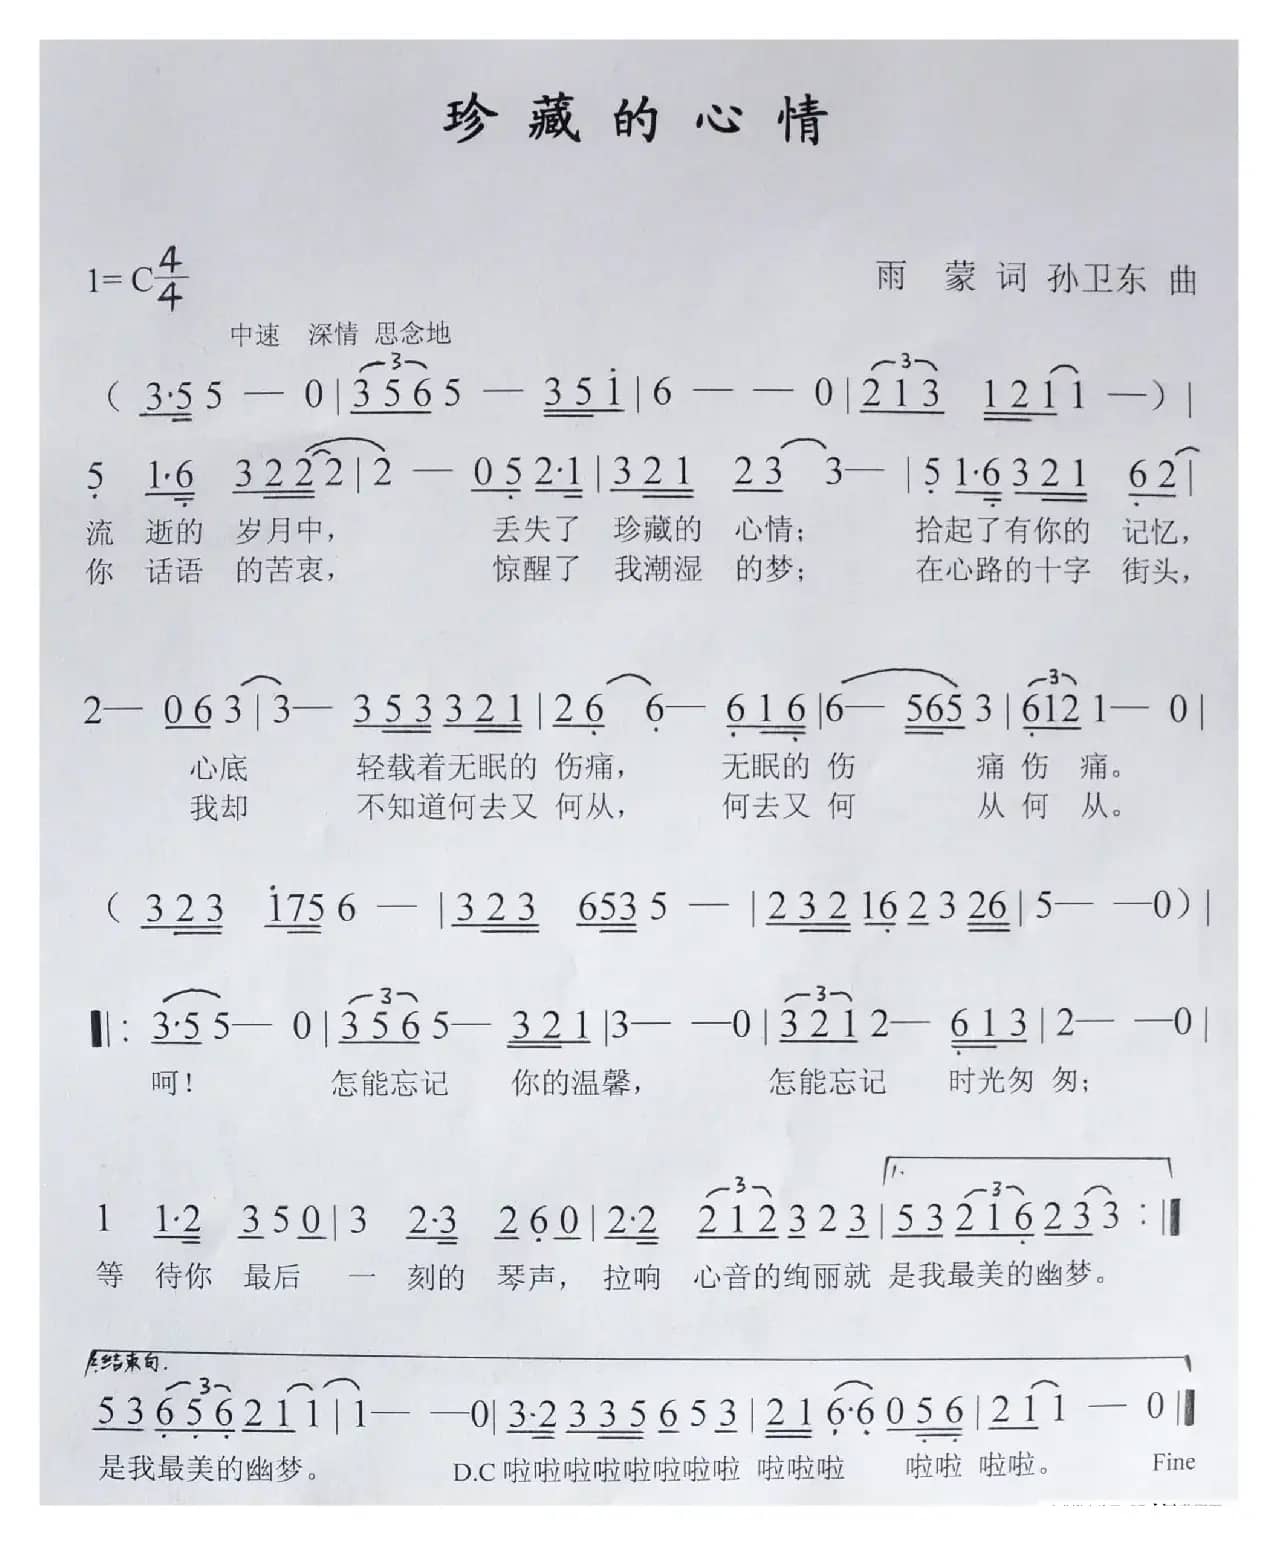 珍藏的心情
1=C 4/4
雨 蒙 词 孙卫东 曲
中速 深情 思念地
（ 3·5 5 — 0 | 3 5 6 5 — 3 5 1 | 6 — — 0 | 2 1 3 1 2 1 1 — ）|
5 1·6 3 2 2 2 | 2 — 0 5 2·1 | 3 2 1 2 3 3 — | 5 1·6 3 2 1 6 2 |
流 逝的 岁月中， 丢失了 珍藏的 心情； 拾起了有你的 记忆，
你 话语 的苦衷， 惊醒了 我潮湿 的梦； 在心路的十字 街头，
2 — 0 6 3 | 3 — 3 5 3 3 2 1 | 2 6 6 — 6 1 6 | 6 — 5 6 5 3 | 6 1 2 1 — 0 |
心底 轻载着无眠的 伤痛， 无眠的 伤 痛 伤 痛。
我却 不知道何去又 何从， 何去又 何 从 何 从。
（ 3 2 3 1 7 5 6 — | 3 2 3 6 5 3 5 — | 2 3 2 1 6 2 3 2 6 | 5 — — 0 ）|
|: 3·5 5 — 0 | 3 5 6 5 — 3 2 1 | 3 — — 0 | 3 2 1 2 — 6 1 3 | 2 — — 0 |
呵！ 怎能忘记 你的温馨， 怎能忘记 时光匆 匆；
1.
1 1·2 3 5 0 | 3 2·3 2 6 0 | 2·2 2 1 2 3 2 3 | 5 3 2 1 6 2 3 3 :|
等 待你 最后 一 刻的 琴声， 拉响 心音的绚丽就 是我最美的幽梦。
结束句.
5 3 6 5 6 2 1 1 | 1 — — 0 | 3·2 3 3 5 6 5 3 | 2 1 6·6 0 5 6 | 2 1 1 — 0 |
是我最美的幽梦。 D.C 啦啦啦啦啦啦啦啦 啦啦啦 啦啦 啦啦。 Fine